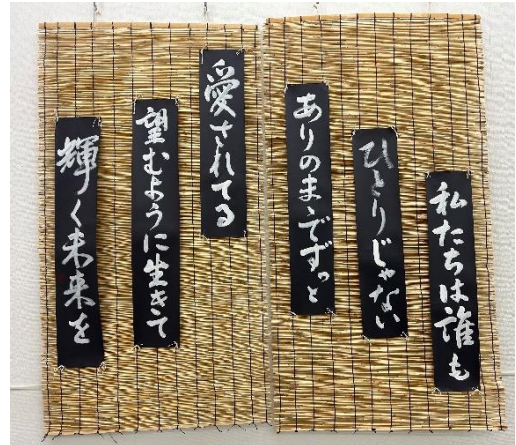 私たちは誰も
ひとりじゃない
ありのままでずっと
愛されてる
望むように生きて
輝く未来を